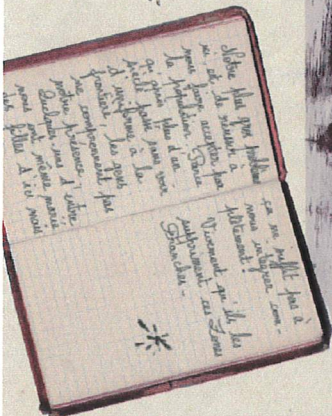 Notre plus gros problème
ici, est de réussir à
nous faire accepter par
la population. Parce
qu'après plus d'un
siècle passé sans voir
d'uniforme à la
frontière, les gens
ne comprennent pas
notre présence.
Quelques-uns d'entre
nous ont même marié
des filles d'ici mais
ça ne suffit pas à
nous intégrer com-
plètement.
Vivement qu'ils les
suppriment ces Zones
Franches.